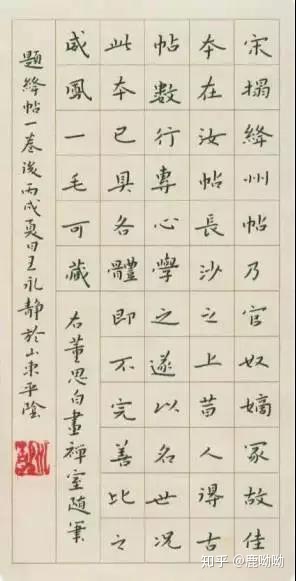 宋搨絳州帖乃官奴嫡冢故佳
本在汝帖長沙之上昔人得古
帖數行專心學之遂以名世況
此本已具各體即不完善比之
威鳳一毛可藏 右董思白畫禪室随筆
題絳帖一卷後丙戌夏日王礼静於山東平陰
知乎 @鹿呦呦